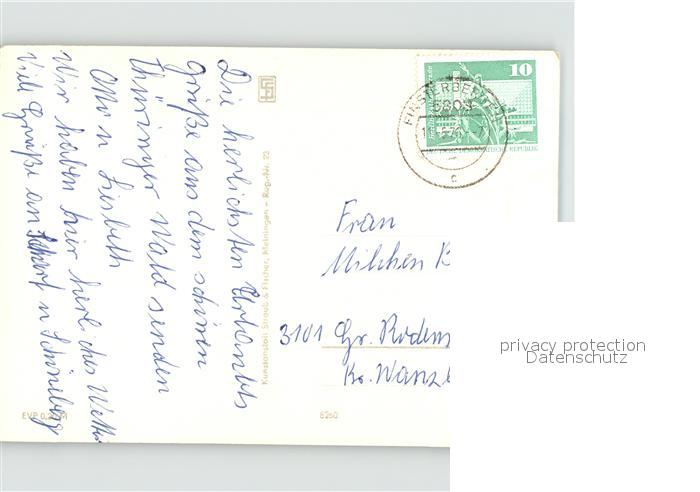 Die herlichsten Urlaubs
Grüße aus dem schönen
Thüringer Wald senden
Otto u Lisbeth
Wir haben hier herliches Wetter
Viele Grüße an u Schöneberg
Kunstanstalt Straub & Fischer, Meiningen – Reg.-Nr. 23
EVP 0,20 M
8260
10
FINSTERBERGEN
5804
Frau
Milchen K
3101 Gr. Rodens
Kr. Wanzl
privacy protection
Datenschutz